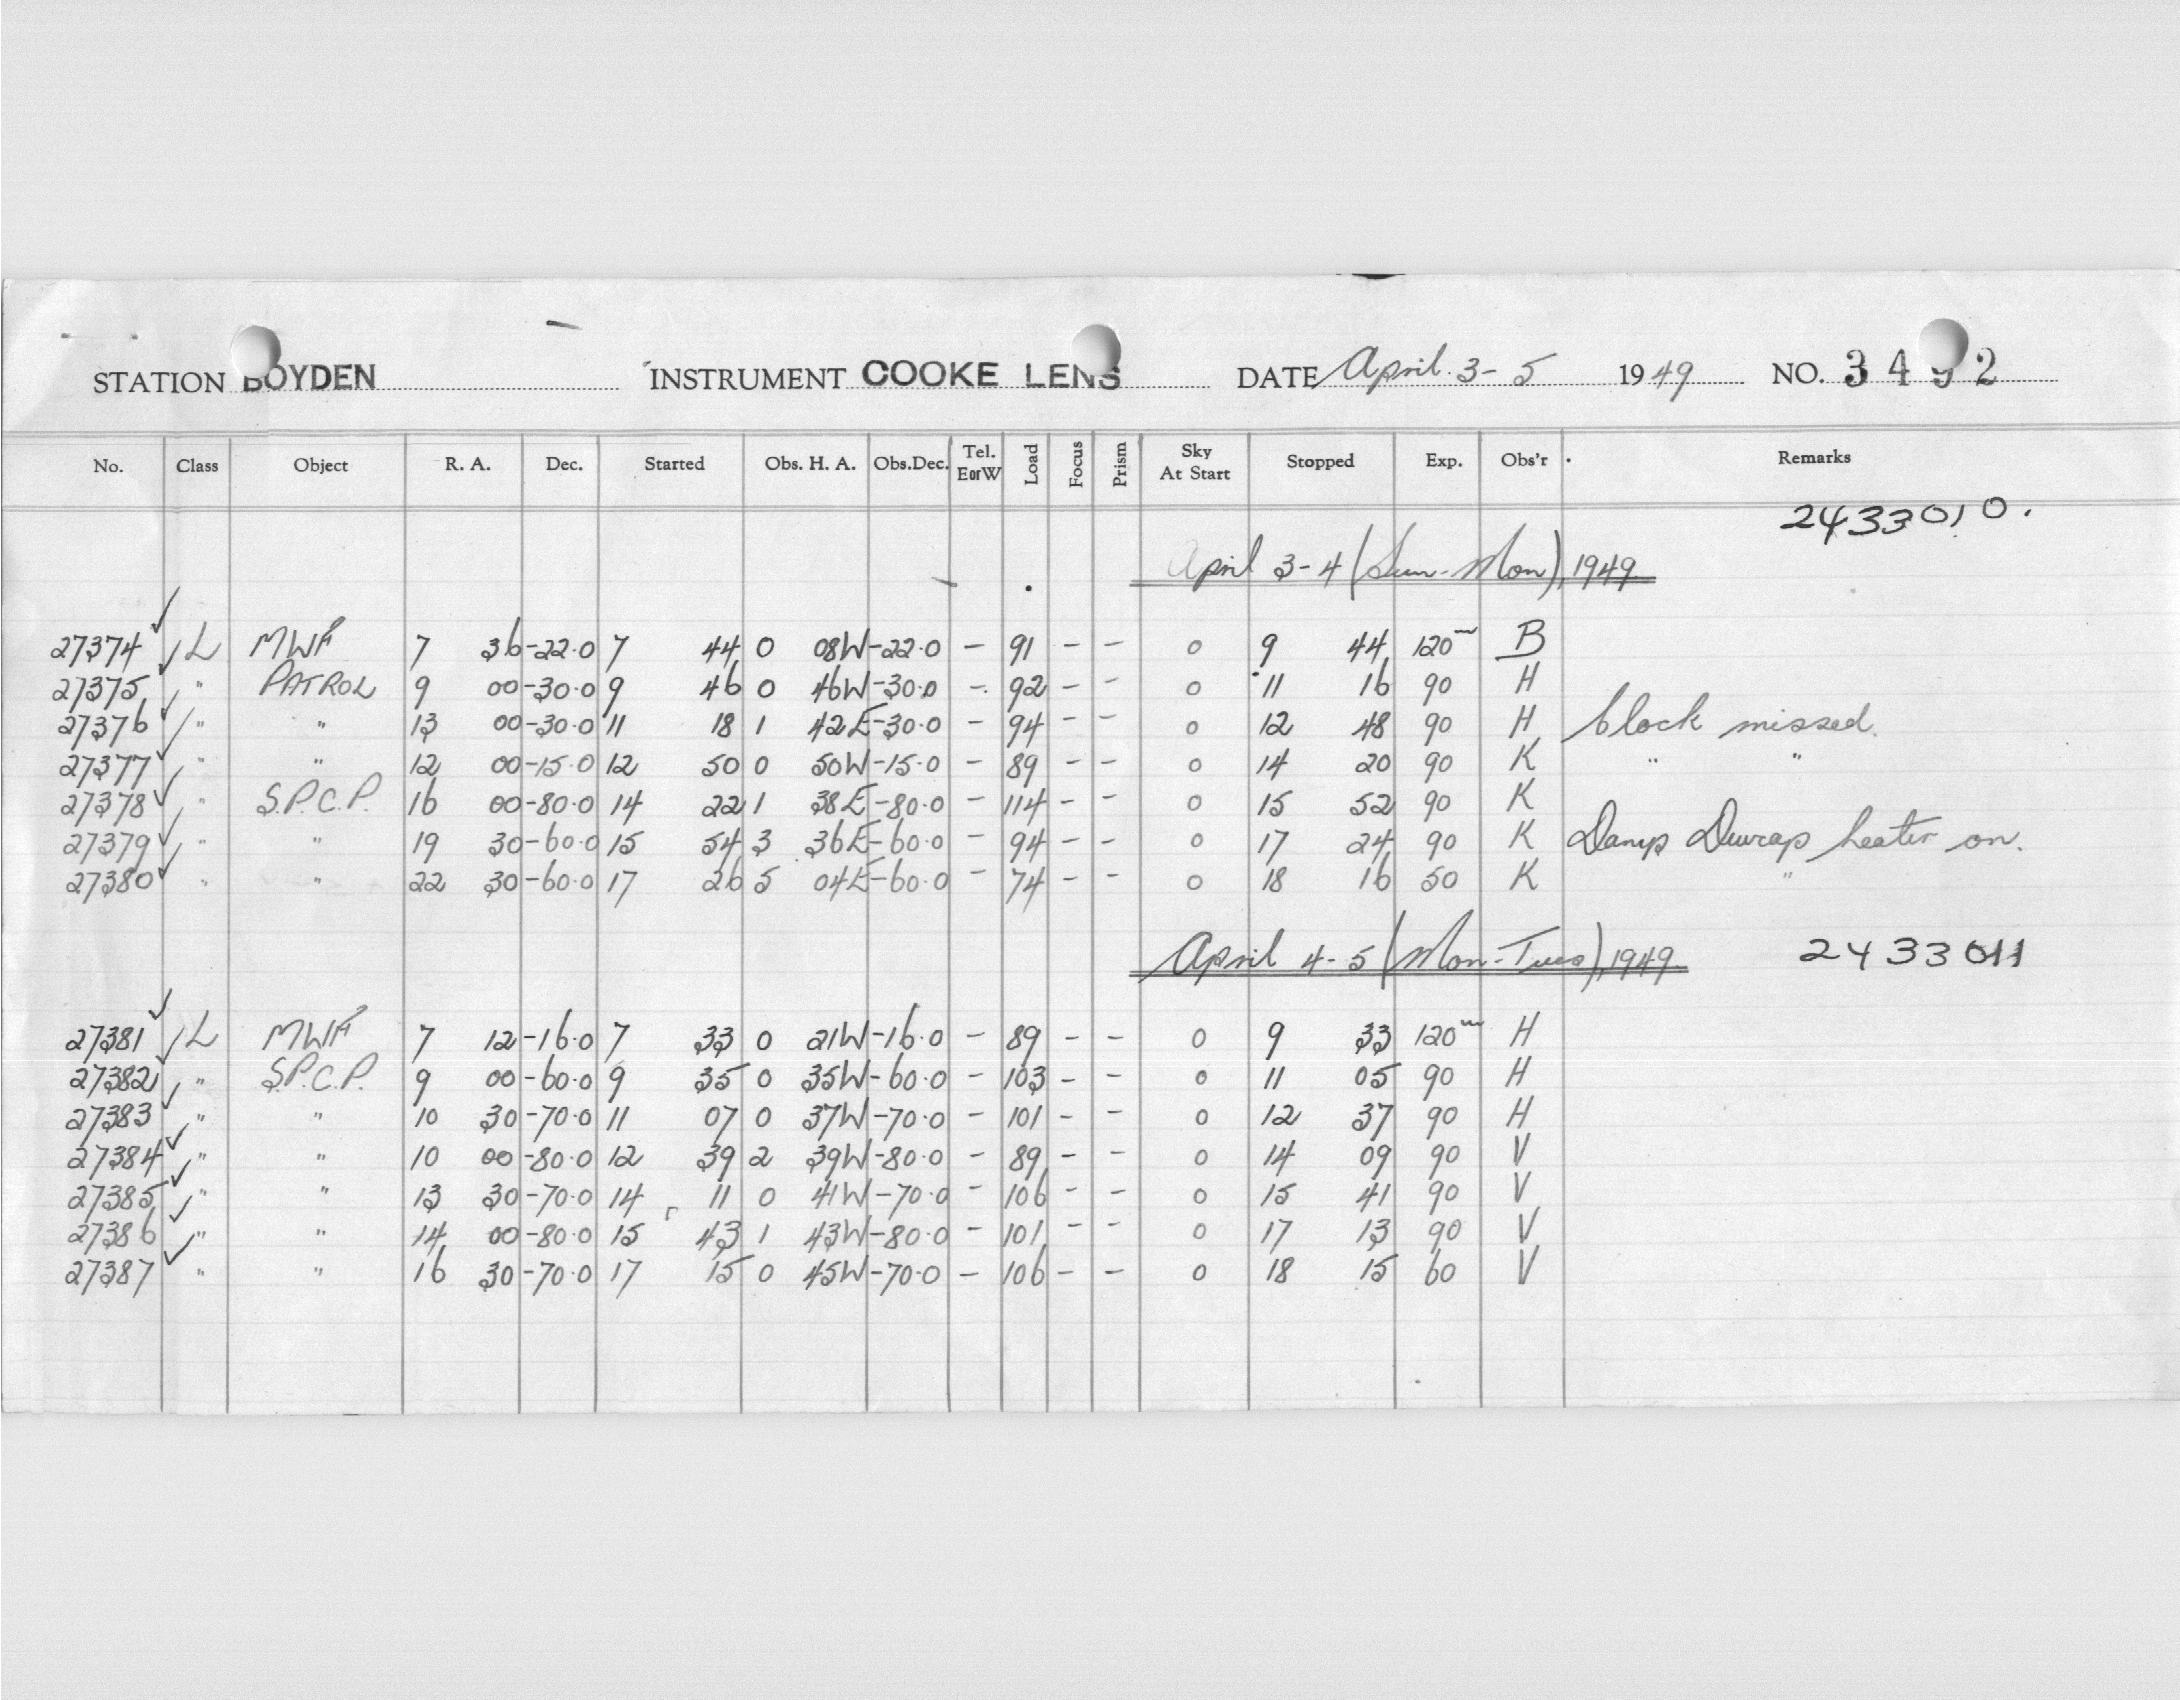 STATION BOYDEN INSTRUMENT COOKE LENS DATE April 3-5 1949 NO. 3492
No. Class Object R. A. Dec. Started Obs. H. A. Obs.Dec. Tel. EorW Load Focus Prism Sky At Start Stopped Exp. Obs'r Remarks
2433010.
April 3-4 (Sun-Mon), 1949
27374 ✓ L MWF 7 36 -22.0 7 44 0 08W -22.0 - 91 - - 0 9 44 120m B
27375 ✓ " PATROL 9 00 -30.0 9 46 0 46W -30.0 - 92 - - 0 11 16 90 H
27376 ✓ " " 13 00 -30.0 11 18 1 42E -30.0 - 94 - - 0 12 48 90 H block missed.
27377 ✓ " " 12 00 -15.0 12 50 0 50W -15.0 - 89 - - 0 14 20 90 K " "
27378 ✓ " S.P.C.P. 16 00 -80.0 14 22 1 38E -80.0 - 114 - - 0 15 52 90 K
27379 ✓ " " 19 30 -60.0 15 54 3 36E -60.0 - 94 - - 0 17 24 90 K Damp Dewcap heater on.
27380 ✓ " " 22 30 -60.0 17 26 5 04E -60.0 - 74 - - 0 18 16 50 K "
April 4-5 (Mon-Tues), 1949 2433011
27381 ✓ L MWF 7 12 -16.0 7 33 0 21W -16.0 - 89 - - 0 9 33 120m H
27382 ✓ " S.P.C.P. 9 00 -60.0 9 35 0 35W -60.0 - 103 - - 0 11 05 90 H
27383 ✓ " " 10 30 -70.0 11 07 0 37W -70.0 - 101 - - 0 12 37 90 H
27384 ✓ " " 10 00 -80.0 12 39 2 39W -80.0 - 89 - - 0 14 09 90 V
27385 ✓ " " 13 30 -70.0 14 11 0 41W -70.0 - 106 - - 0 15 41 90 V
27386 ✓ " " 14 00 -80.0 15 43 1 43W -80.0 - 101 - - 0 17 13 90 V
27387 ✓ " " 16 30 -70.0 17 15 0 45W -70.0 - 106 - - 0 18 15 60 V